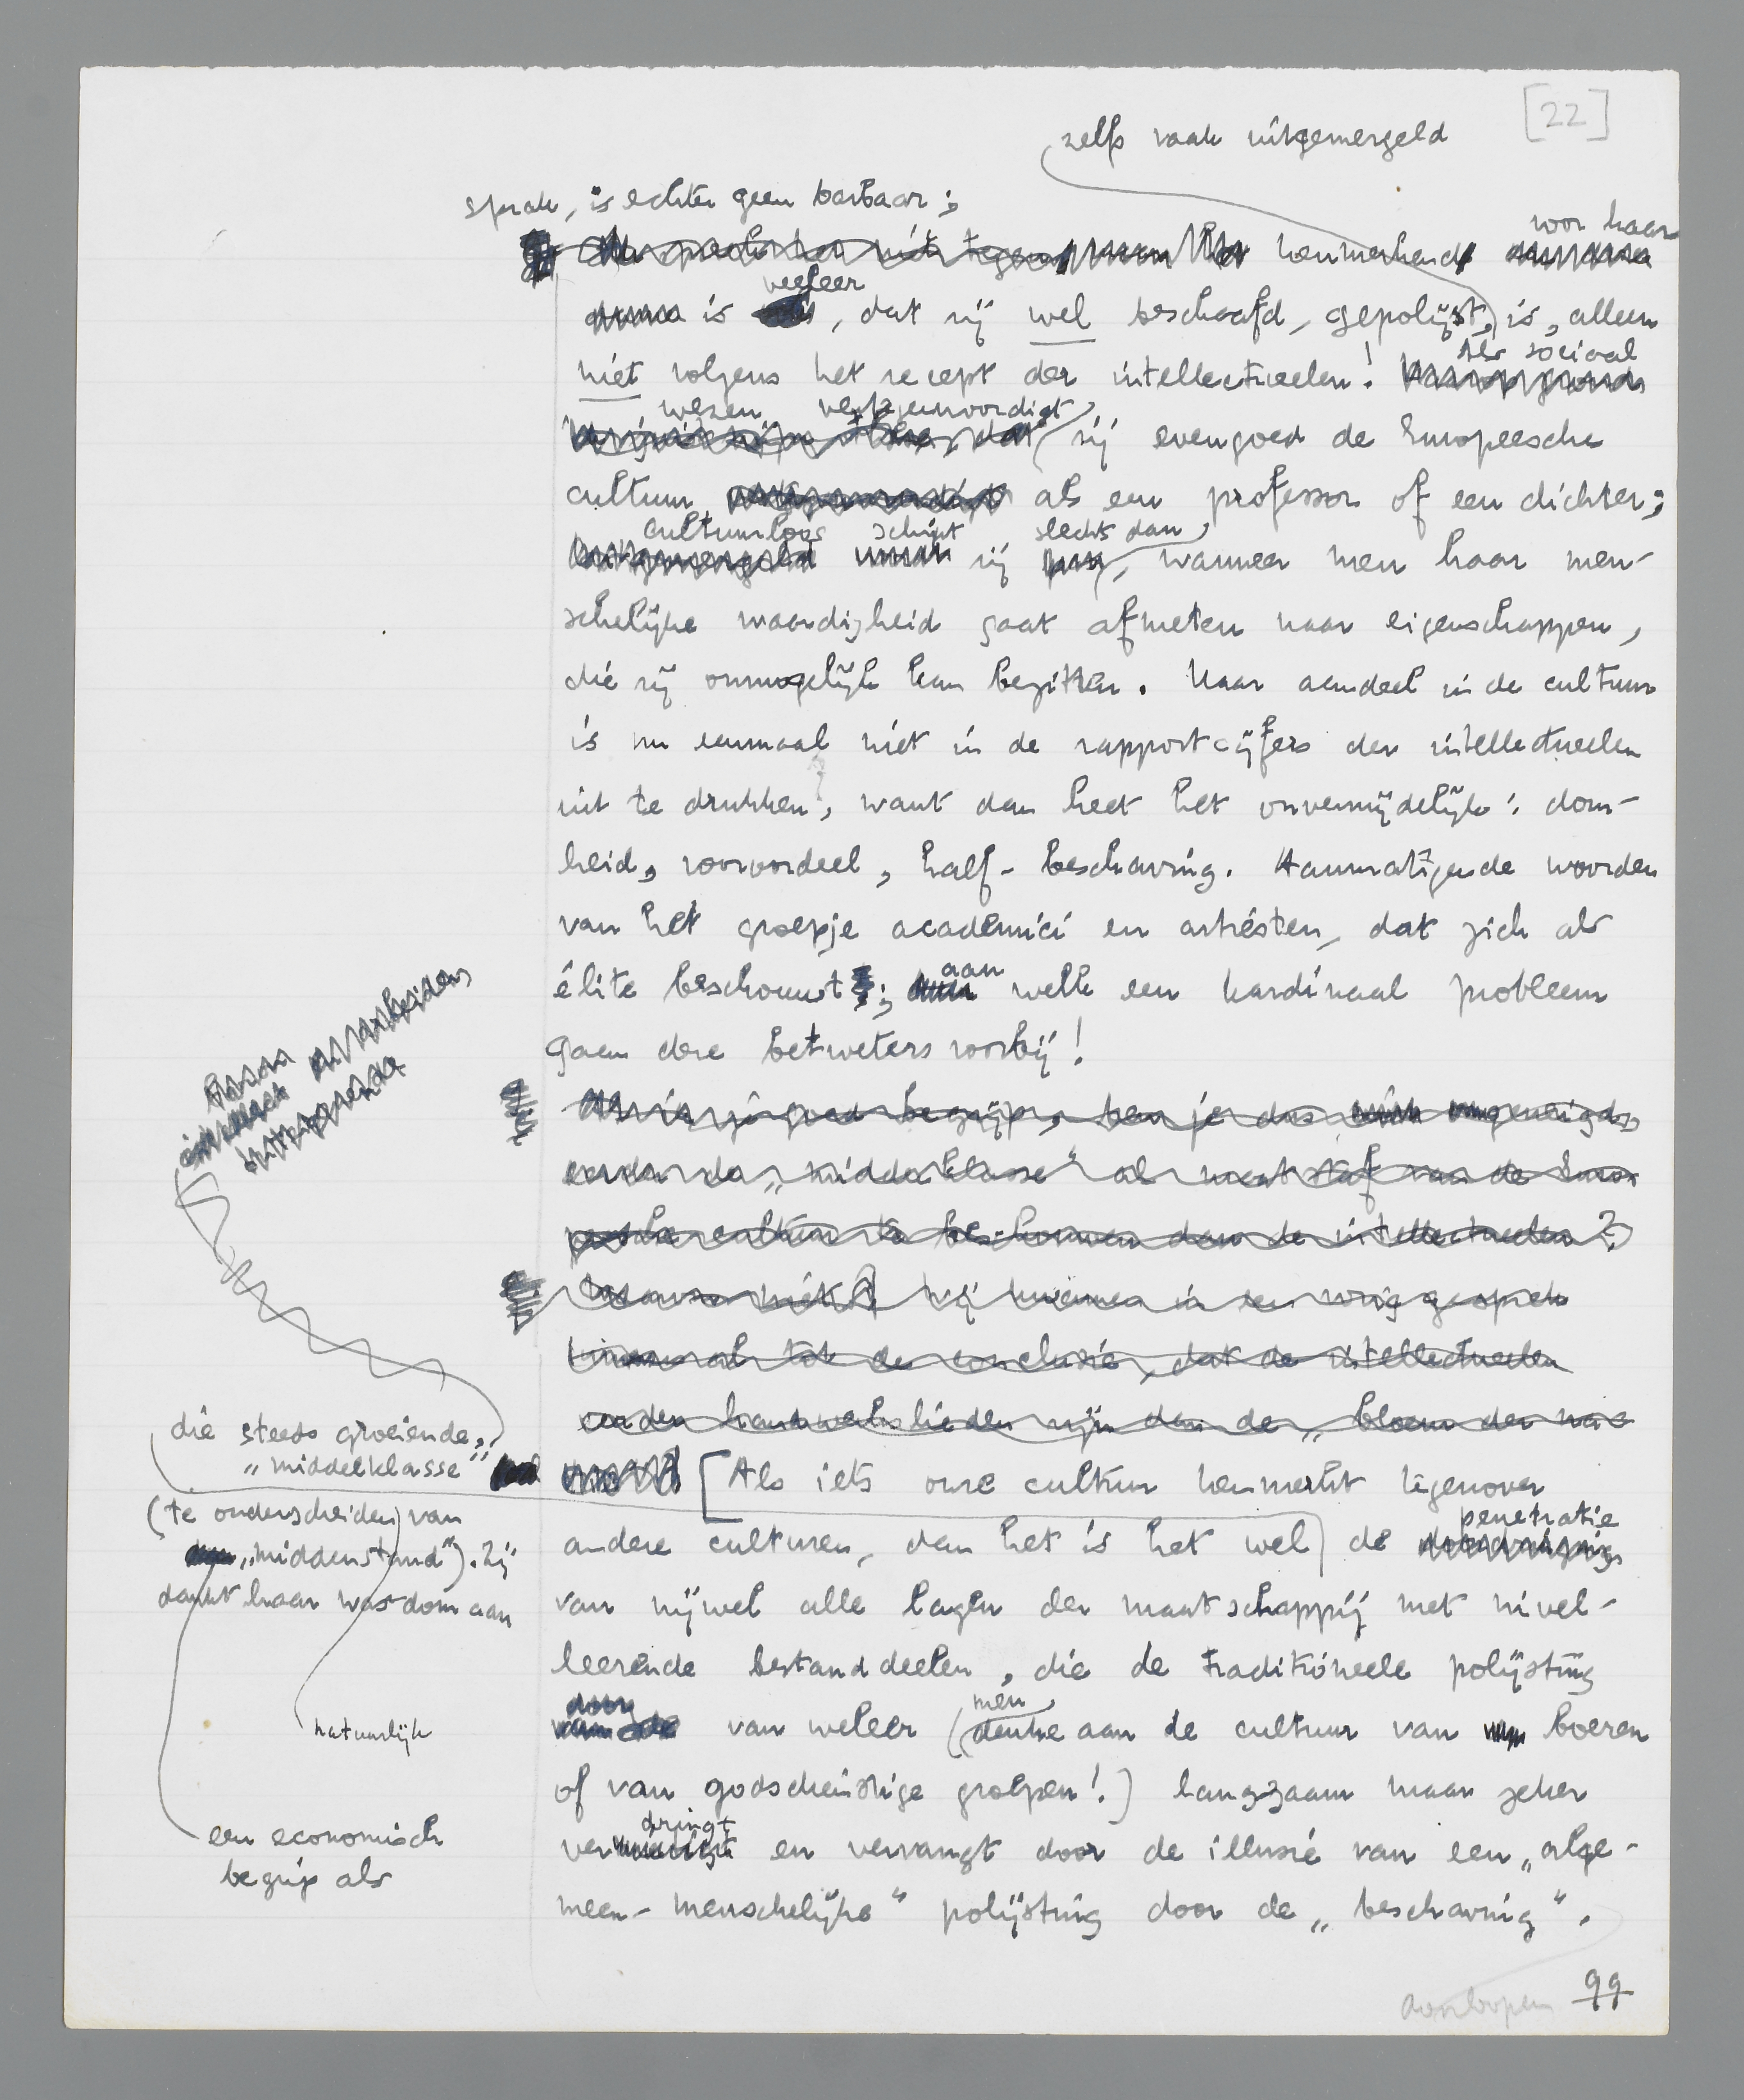 [22]
zelfs vaak uitgemergeld
sprak, is echter geen barbaar;
kenmerkend voor haar
is veeleer, dat zij wel beschaafd, gepolijst, is, alleen
niet volgens het recept der intellectueelen! Als sociaal
wezen vertegenwoordigt zij evengoed de Europeesche
cultuur als een professor of een dichter;
cultuurloos schijnt zij slechts dan, wanneer men haar men-
schelijke waardigheid gaat afmeten naar eigenschappen,
die zij onmogelijk kan bezitten. Haar aandeel in de cultuur
is nu eenmaal niet in de rapportcijfers der intellectueelen
uit te drukken, want dan heet het onvermijdelijk: dom-
heid, vooroordeel, half-beschaving. Aanmatigende woorden
van het groepje academici en artiesten, dat zich als
élite beschouwt; aan welk een kardinaal probleem
gaan deze betweters voorbij!
Als ik je goed begrijp, ben je dus geneigd,
eerder de „middelklasse" als maatstaf van de Euro-
peesche cultuur te beschouwen dan de intellectueelen?
Waarom niet? Wij kwamen in een vorig gesprek
immers al tot de conclusie, dat de intellectueelen
eerder handwerkslieden zijn dan de „bloem der na-
[Als iets onze cultuur kenmerkt tegenover
andere culturen, dan het is het wel de penetratie
van zijwel alle lagen der maatschappij met nivel-
leerende bestanddeelen, die de traditioneele polijsting
door van weleer (men denke aan de cultuur van boeren
of van godsdienstige groepen!) langzaam maar zeker
verdringt en vervangt door de illusie van een „alge-
meen-menschelijke" polijsting door de „beschaving".
die steeds groeiende,
„middelklasse"
(te onderscheiden van
„middenstand"). Zij
dankt haar wasdom aan
natuurlijk
een economisch
begrip als
doorloopen
99